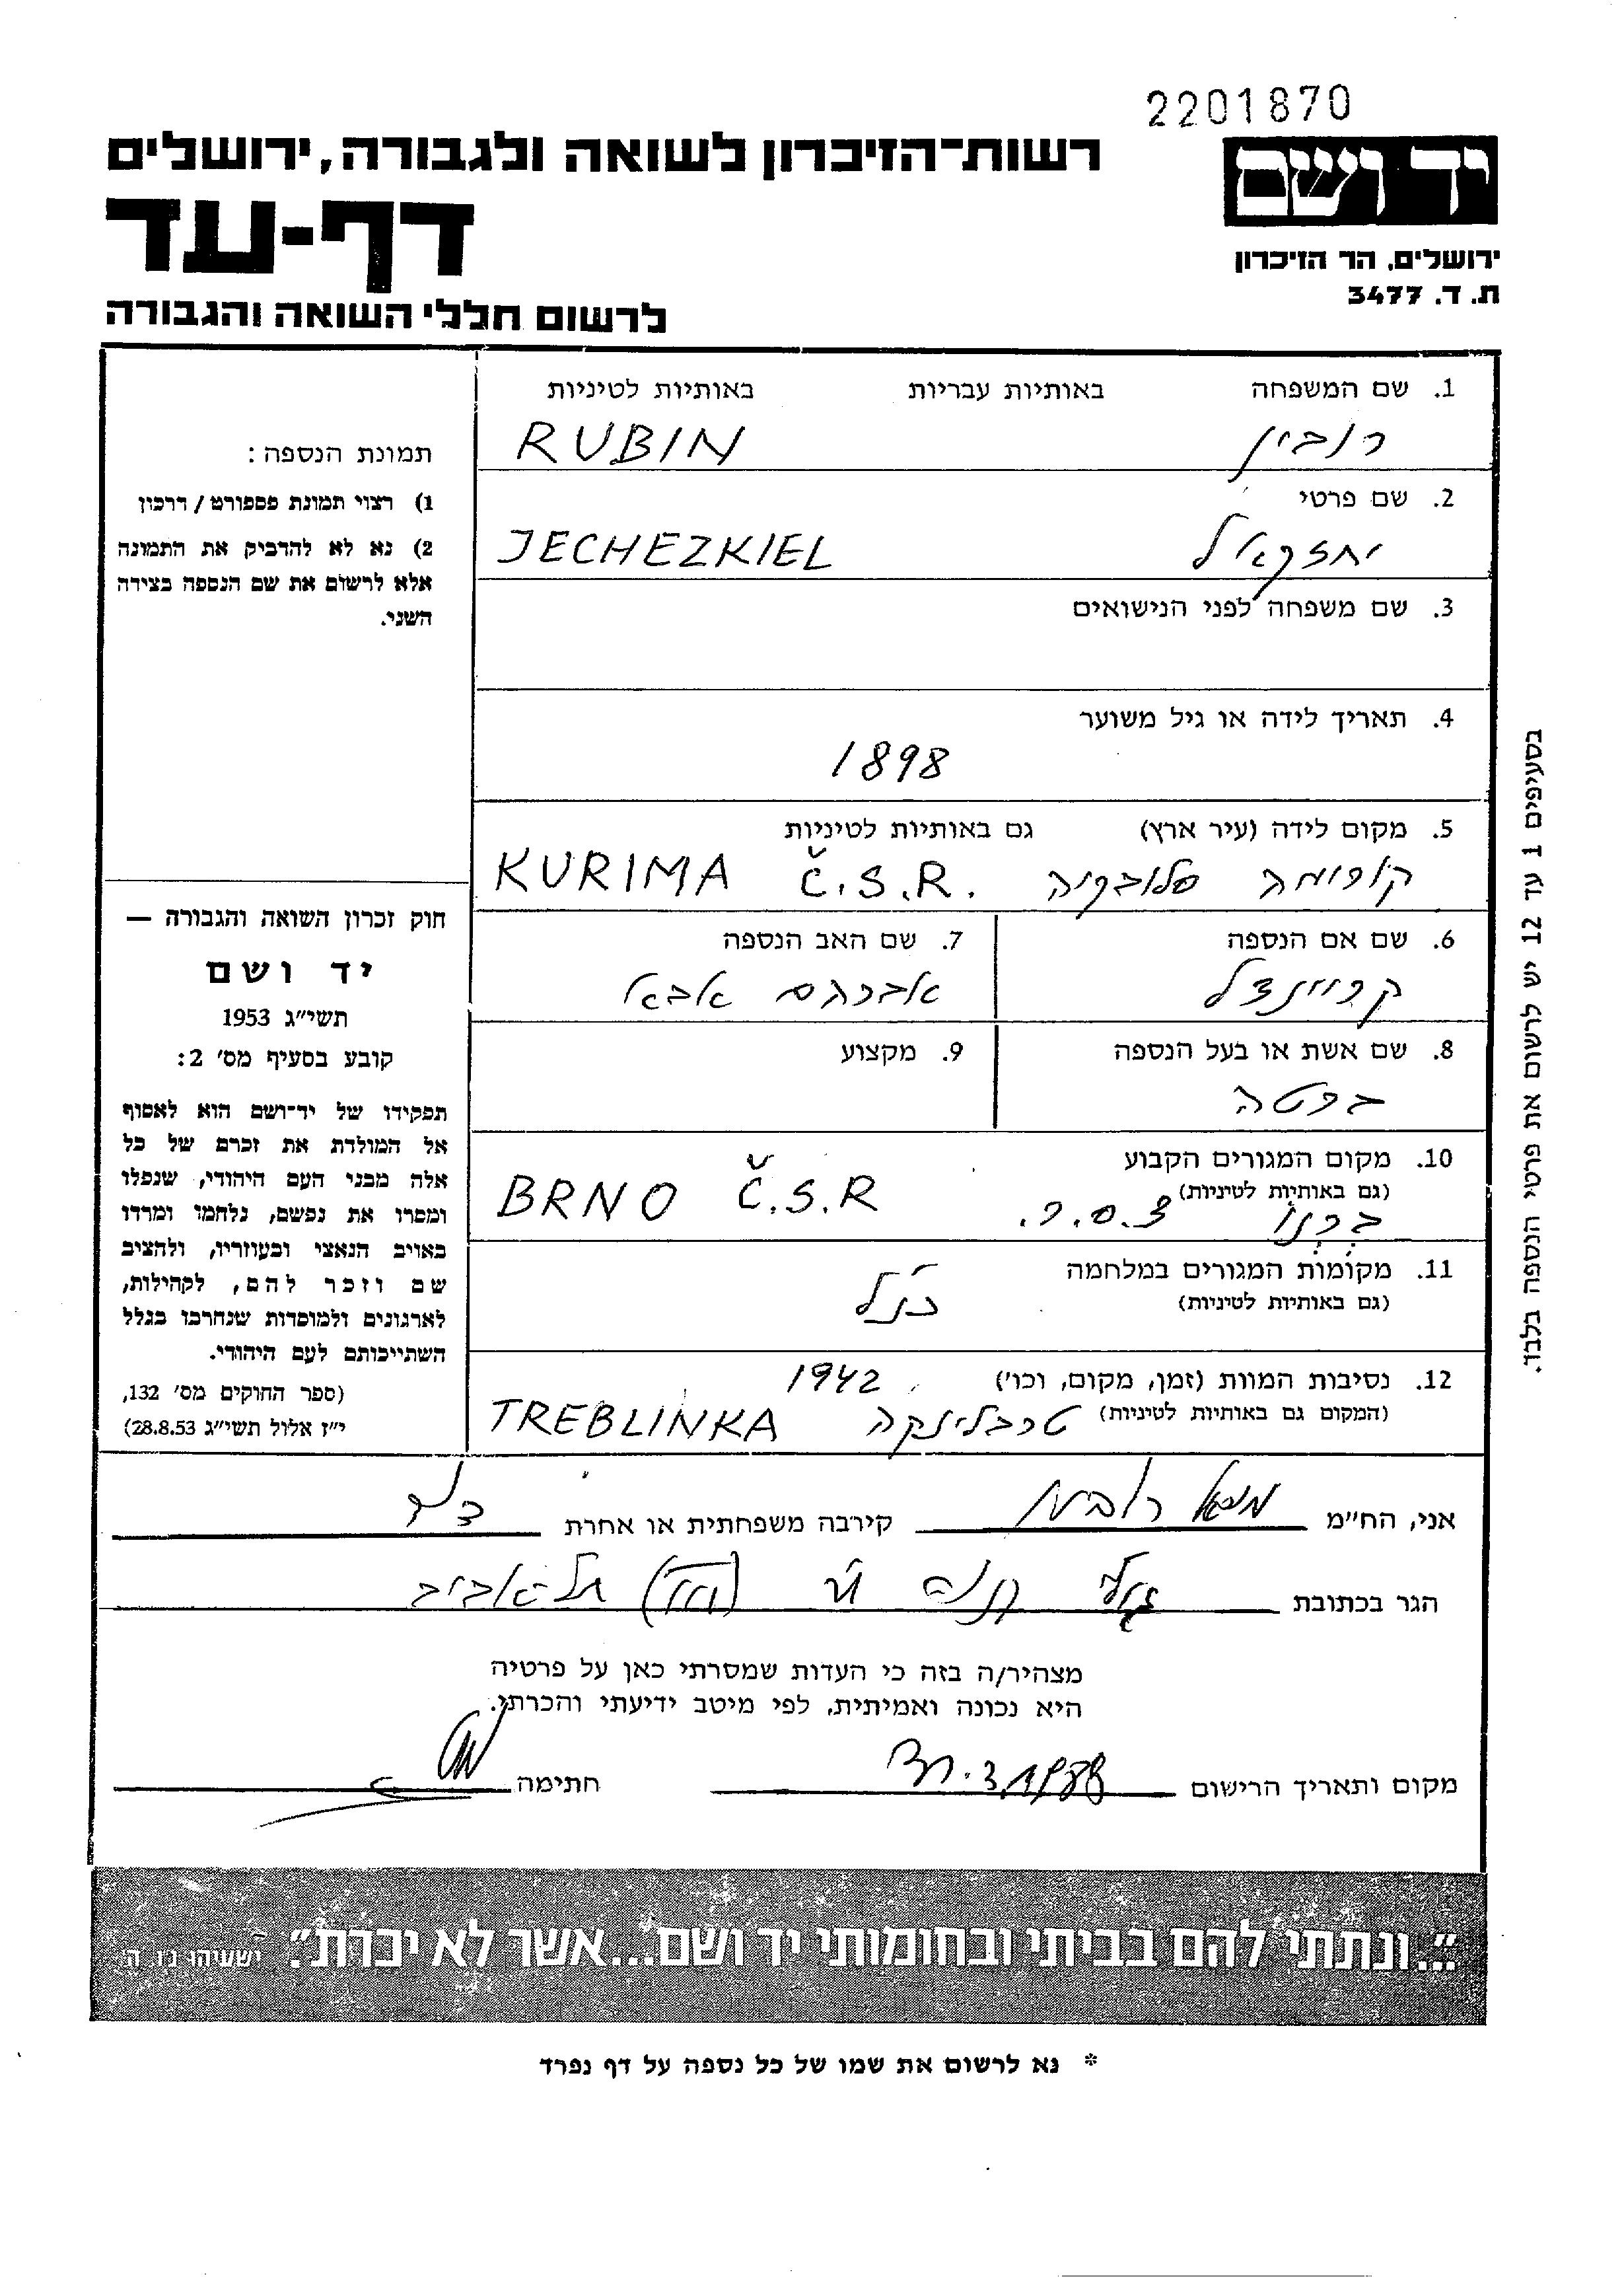 2201870
רשות־הזיכרון לשואה ולגבורה, ירושלים
יד ושם
דף-עד
ירושלים, הר הזיכרון
ת. ד. 3477
לרשום חללי השואה והגבורה
1. שם המשפחה באותיות עבריות באותיות לטיניות
רובין RUBIN
2. שם פרטי
יחזקאל JECHEZKIEL
3. שם משפחה לפני הנישואים
4. תאריך לידה או גיל משוער
1898
5. מקום לידה (עיר ארץ) גם באותיות לטיניות
קורימה סלובקיה KURIMA Č.S.R.
6. שם אם הנספה 7. שם האב הנספה
קריינדל אברהם אבא
8. שם אשת או בעל הנספה 9. מקצוע
ברטה
10. מקום המגורים הקבוע
(גם באותיות לטיניות)
ברנו צ.ס.ר. BRNO Č.S.R
11. מקומות המגורים במלחמה
(גם באותיות לטיניות)
כנ"ל
12. נסיבות המוות (זמן, מקום, וכו') 1942
(המקום גם באותיות לטיניות) טרבלינקה TREBLINKA
תמונת הנספה:
1) רצוי תמונת פספורט / דרכון
2) נא לא להדביק את התמונה
אלא לרשום את שם הנספה בצידה
השני.
חוק זכרון השואה והגבורה —
יד ושם
תשי"ג 1953
קובע בסעיף מס' 2:
תפקידו של יד־ושם הוא לאסוף
אל המולדת את זכרם של כל
אלה מבני העם היהודי, שנפלו
ומסרו את נפשם, נלחמו ומרדו
באויב הנאצי ובעוזריו, ולהציב
שם וזכר להם, לקהילות,
לארגונים ולמוסדות שנחרבו בגלל
השתייכותם לעם היהודי.
(ספר החוקים מס' 132,
י"ז אלול תשי"ג 28.8.53)
בסעיפים 1 עד 12 יש לרשום את פרטי הנספה בלבד.
אני, הח"מ רובין קירבה משפחתית או אחרת
הגר בכתובת תל-אביב
מצהיר/ה בזה כי העדות שמסרתי כאן על פרטיה
היא נכונה ואמיתית, לפי מיטב ידיעתי והכרתי.
מקום ותאריך הרישום חתימה
"...ונתתי להם בביתי ובחומותי יד ושם...אשר לא יכרת". ישעיהו נו, ה'
* נא לרשום את שמו של כל נספה על דף נפרד